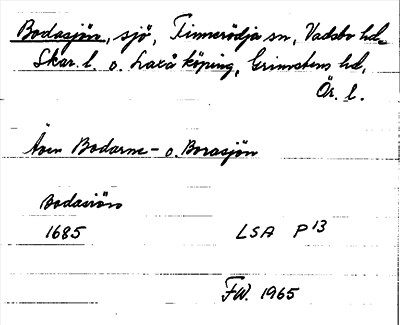 Bodasjön, sjö, Tinnerödja sn, Vadsbo hd
Skar. l. o. Laxå köping, Grimstens hd,
Ör. l.
Även Bodarne- o. Borasjön
Bodasiön
1685 LSA P 13
FW. 1965